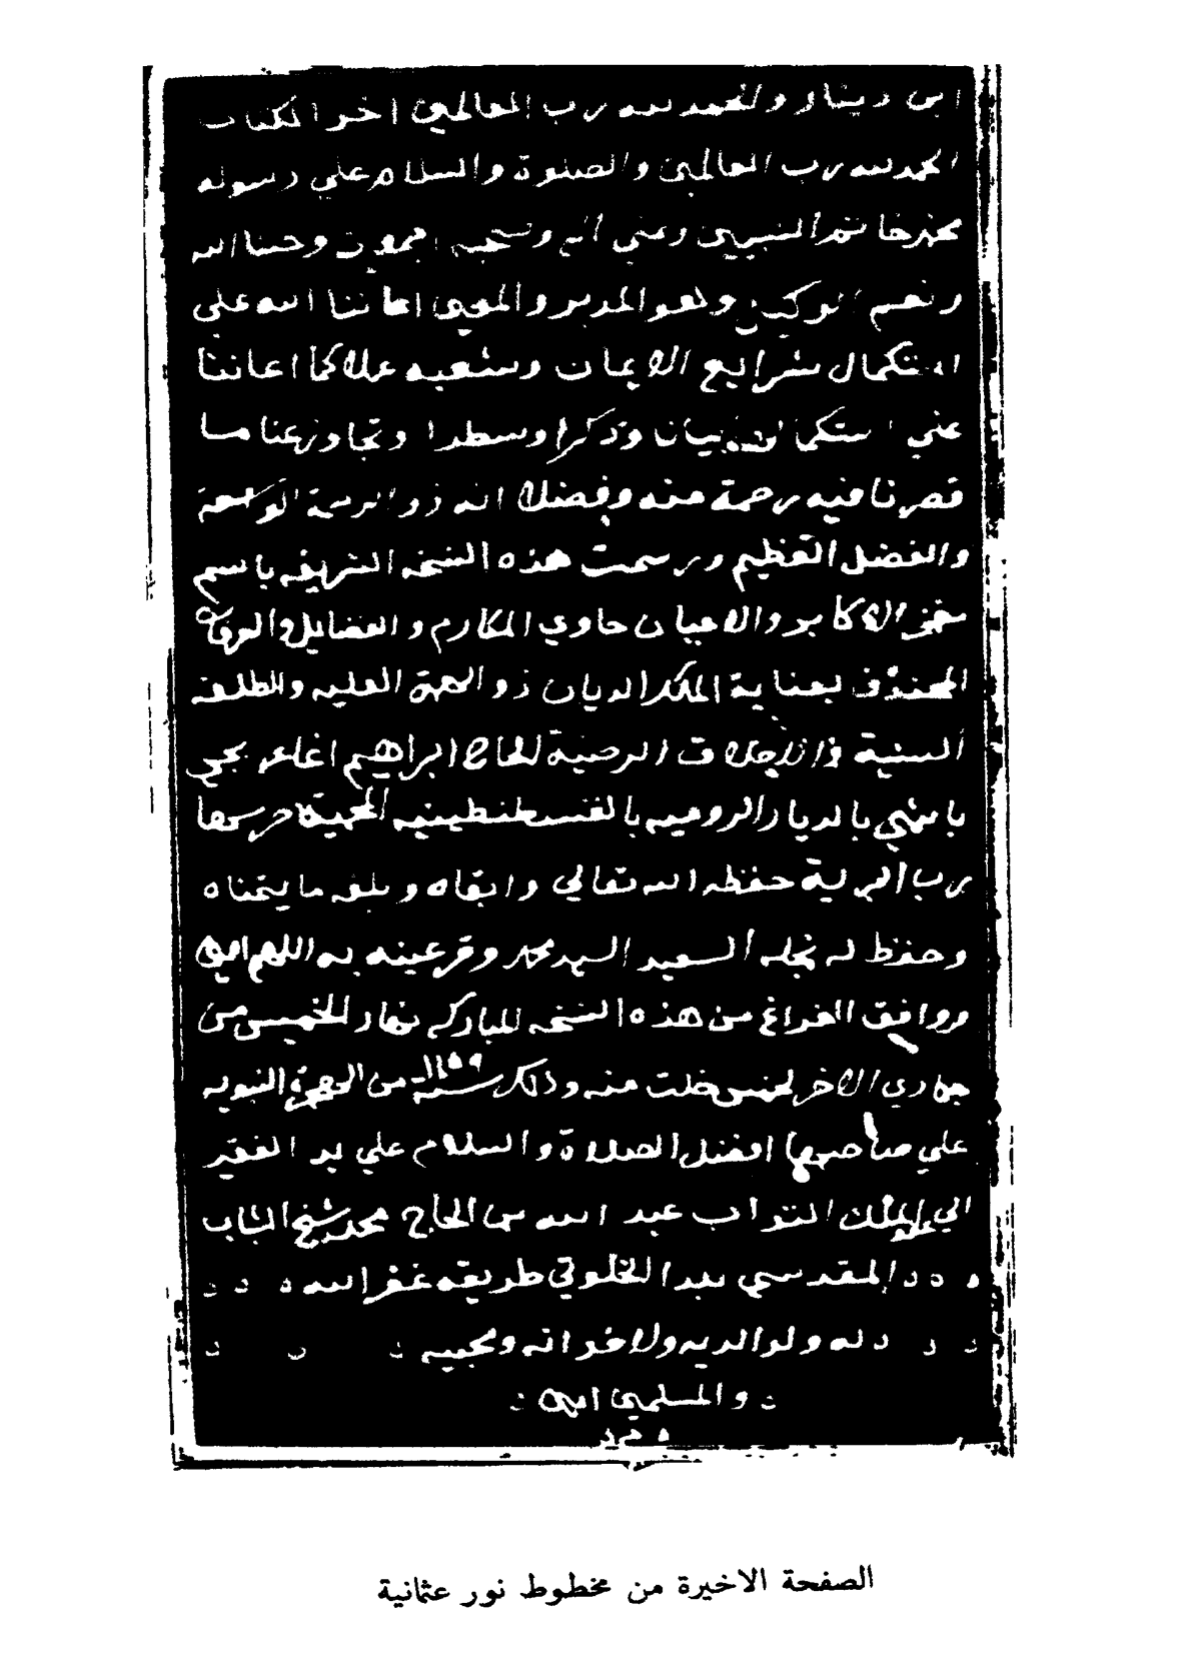 ابن دينار والحمد لله رب العالمين اخر الكتاب
الحمد لله رب العالمين والصلوة والسلام علي رسوله
محمد خاتم النبيين وعلي اله وصحبه اجمعين وحسبنا الله
ونعم الوكيل وهو المدبر والمعين اعاننا الله علي
استكمال شرايع الايمان وشعبه عملا كما اعاننا
علي استكمال بيان وذكرا وسطرا وتجاوز عنا ما
قصرنا فيه رحمة منه وفضلا انه ذو الرحمة الواسعة
والفضل العظيم ورسمت هذه النسخه الشريفه باسم
الاكابر والاعيان حاوي المكارم والفضايل والعرفان
المحفوف بعناية الملك الديان ذو الهمة العليه والطلعه
السنية والاخلاق الرضية الحاج ابراهيم اغا
بالديار الروميه بالقسطنطينيه المحمية حرسها
رب البرية حفظه الله تعالي وابقاه وبلغه ما يتمناه
وحفظ له نجله السعيد السيد محمد وقر عينه به اللهم امين
ووافق الفراغ من هذه النسخه المباركه نهار الخميس من
جمادي الاخر لخمس خلت منه وذلك سنة ١١٥٩ من الهجرة النبويه
علي صاحبها افضل الصلاة والسلام علي يد الفقير
الي الملك التواب عبد الله بن الحاج محمد الشاب
المقدسي بلدا الخلوتي طريقه غفر الله
له ولوالديه ولاخوانه ومحبيه
والمسلمين امين
الصفحة الاخيرة من مخطوط نور عثمانية